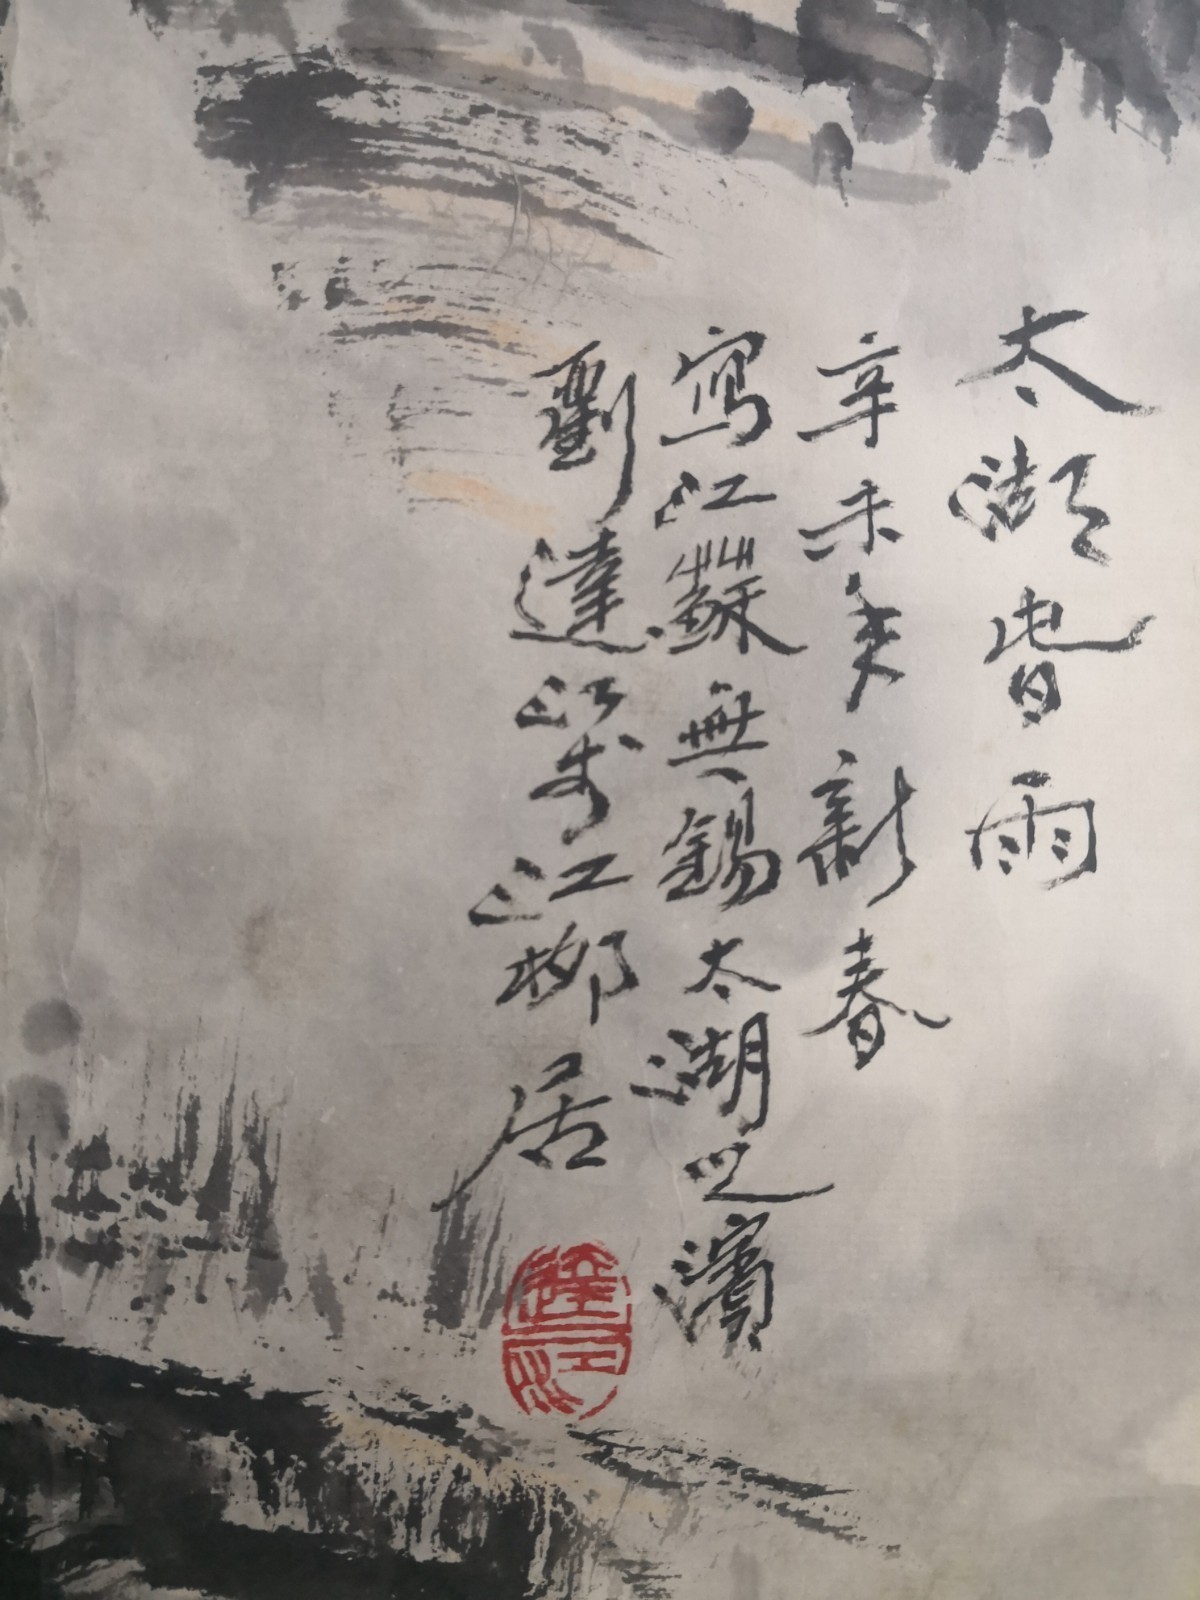 太湖旾雨
辛未秊新春
寫江蘇無錫太湖之濱
劉達江於江柳居
達江